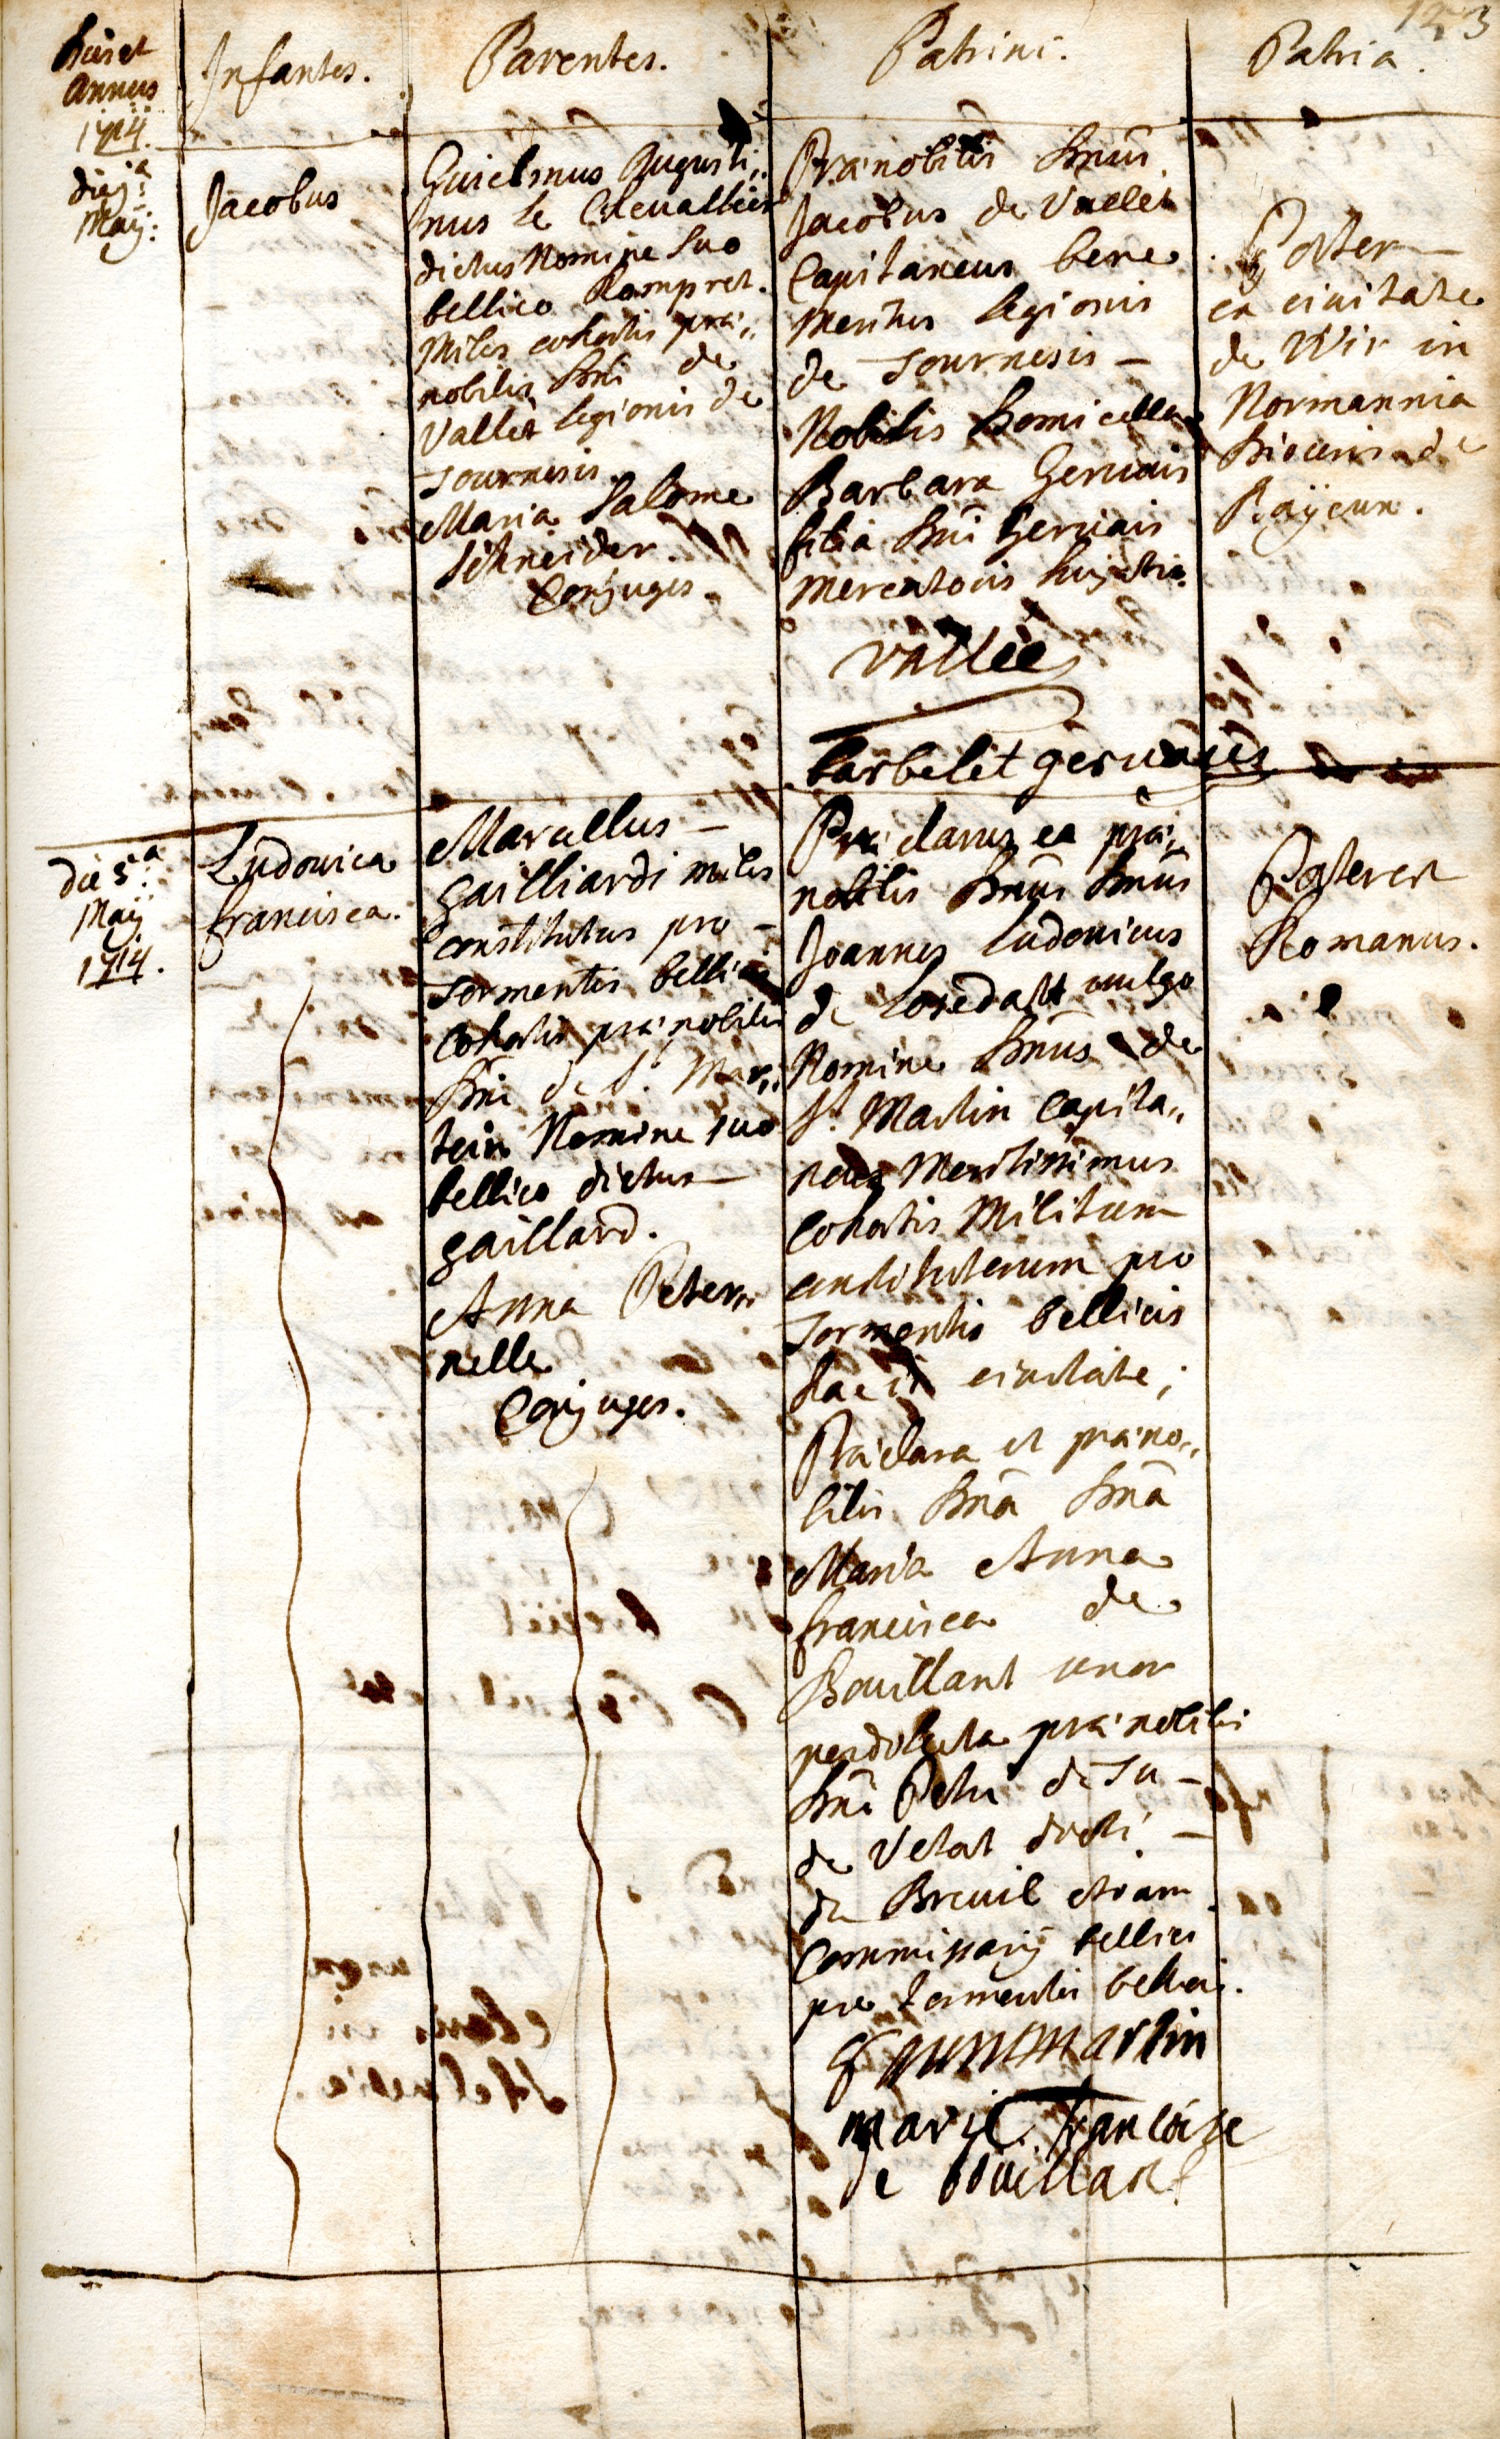 123
Dies et
Annus
1714.
Infantes.
Parentes.
Patrini.
Patria.
die 1ª
Maÿ:
Jacobus
Guielmus Augusti„
nus le Cheuallier
dictus Nomine suo
bellico Rompret.
Miles cohortis præ„
nobilis Dni de
Valleé legionis de
Tournesis.
Maria Salome
Schneider.
Conjuges.
Prænobilis Dnūs
Jacobus de Valleé
Capitaneus bene
Meritus legionis
de Tournesis –
Nobilis Domicella
Barbara Gervais
filia Dni Gervais
Mercatoris
vallée
barbelet gervais
Pater
ex civitate
de Wir in
Normannia
Diocesis de
Baÿeux.
die 5ª
Maÿ
1714.
Ludovica
francisca.
Marcellus –
Gailliardi miles
constitutus pro –
Tormentis bellicis
Cohortis prænobilis
Dni de St. Mar„
tein Nomine suo
bellico dictus –
gaillard.
Anna Peter„
nelle
Conjuges.
Præclarus ea præ„
nobilis Dnūs Dnūs
Joannes Ludovicus
de vulgo
Nomine Dnūs de
St. Martin Capita„
neus Meritissimus
Cohortis Militum
constitutorum pro
Tormentis bellicis
hac in civitate;
Præclara et præno„
bilis Dnā Dnā
Maria Anna
francisca de
Bouillant uxor
prænobilis
Dni Petri de Ju –
de Vetat dicti –
du Breuil etiam
Commissarÿ bellici
pro tormentis bellicis.
marie françoise
de bouillant
Pater est
Romanus.